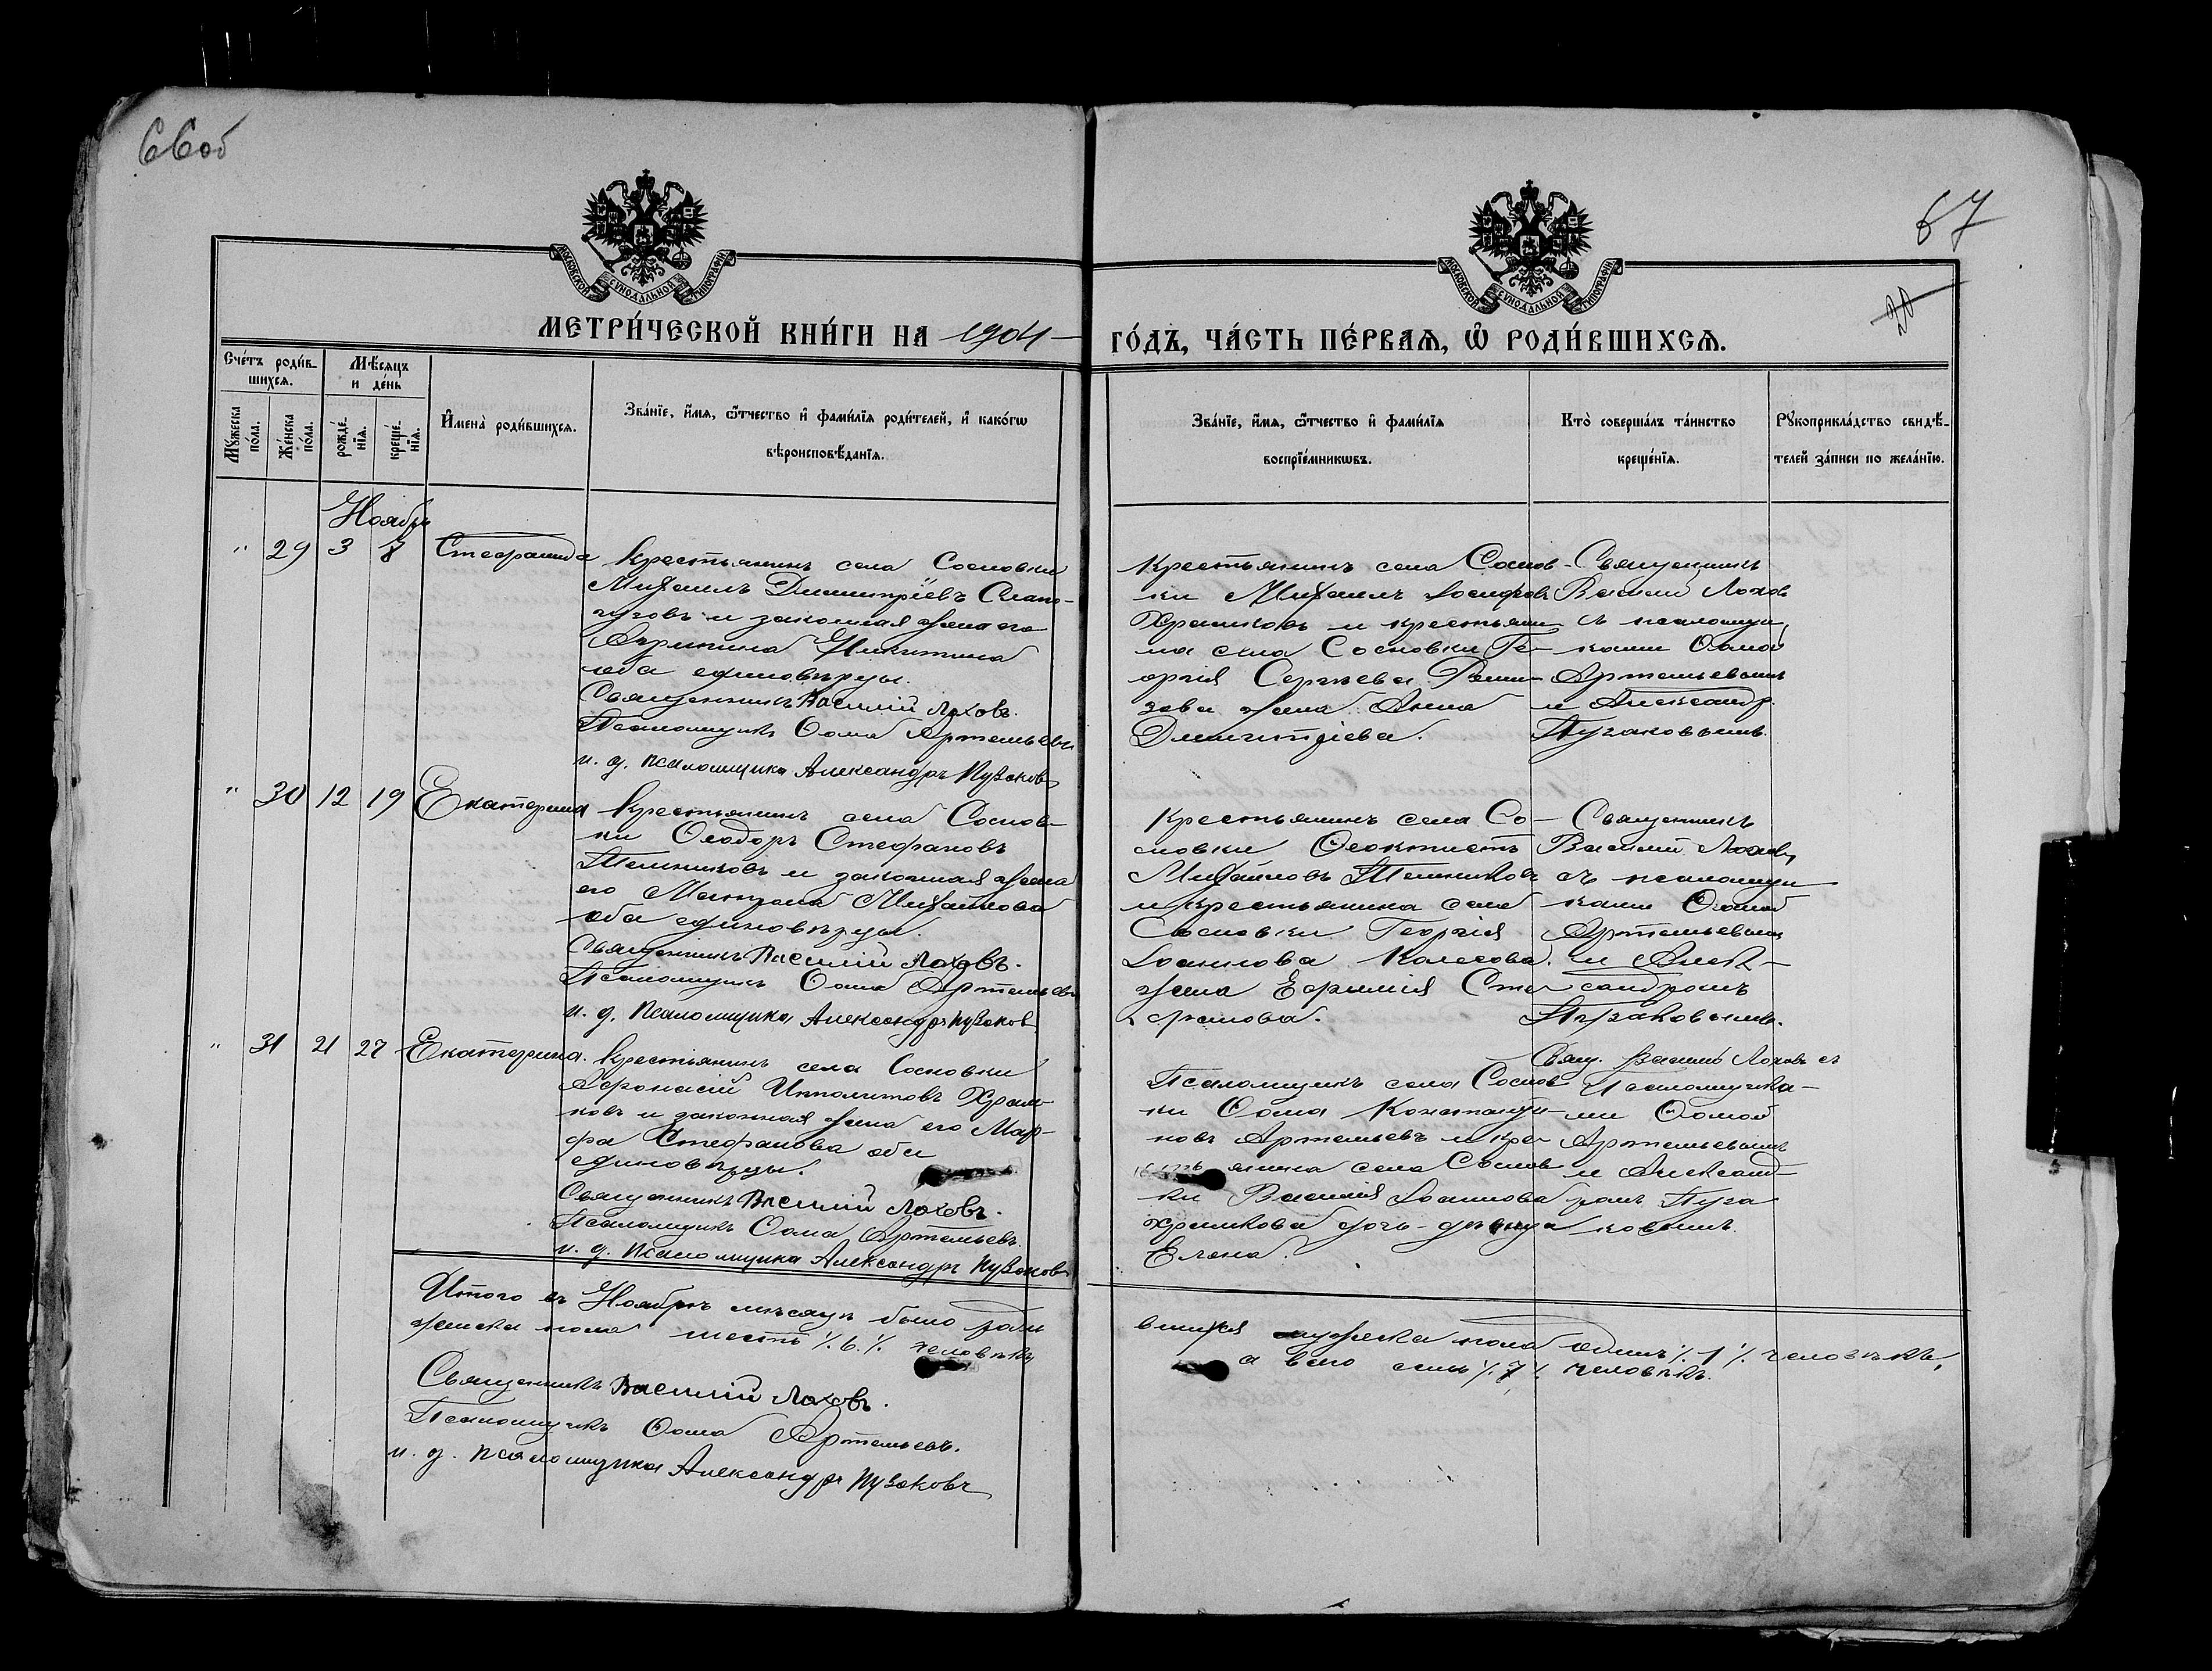 66об
67
20
МОСКОВСКОЙ СѴНОДАЛЬНОЙ ТИПОГРАФІИ
МОСКОВСКОЙ СѴНОДАЛЬНОЙ ТИПОГРАФІИ
МЕТРИ́ЧЕСКОЙ КНИ́ГИ НА 1904 –
ГО́ДЪ, ЧА́СТЬ ПЕ́РВАѦ, Ѽ РОДИ́ВШИХСѦ.
Сче́тъ роди́в-
шихсѧ.
Мѣ́сѧцъ
и де́нь
Мꙋ́жеска
по́ла.
Же́нска
по́ла.
рожде́-
нїѧ.
креще́-
нїѧ.
И҆мена̀ роди́вшихсѧ.
Зва́нїе, и҆́мѧ, ѻ҆́тчество и҆ фами́лїѧ роди́телей, и҆ како́гѡ
вѣроисповѣ́данїѧ.
Зва́нїе, и҆́мѧ, ѻ҆́тчество и҆ фами́лїѧ
воспрїе́мникѡвъ.
Кто̀ соверша́лъ та́инство
креще́нїѧ.
Рꙋкоприкла́дство свидѣ́-
телей за́писи по жела́нїю.
Ноябрь
" 29 3 8 Стефанида
Крестьянинъ села Сосновки
Михаилъ Димитріевъ
и законная жена его
Никитина
оба единовѣрцы.
Священникъ Василій Лоховъ.
Псаломщикъ Ѳома Артемьевъ
и. д. псаломщика Александръ Пузаковъ
Крестьянинъ села Соснов-
ки Михаилъ Іосифовъ
Храмковъ и крестьяни-
на села Сосновки Ге-
оргія Сергѣева
жена Анна
Димитріева.
Священникъ
Василій Лохов
съ псаломщи
ками Ѳомой
Артемьевымъ
и Александр.
Пузаковымъ.
" 30 12 19 Екатерина
Крестьянинъ села Соснов-
ки Ѳеодоръ Стефановъ
и законная жена
его Матрона Михайлова
оба единовѣрцы.
Священникъ Василій Лоховъ.
Псаломщикъ Ѳома Артемьевъ
и. д. псаломщика Александръ Пузаковъ
Крестьянинъ села Со-
сновки Ѳеоктистъ
Михайловъ
и крестьянина села
Сосновки Георгія
Іоаннова Колесова
жена Евфимія Сте
фанова.
Священникъ
Василій Лоховъ
съ псаломщи
ками Ѳомой
Артемьевымъ
и Алек-
сандромъ
Пузаковымъ.
" 31 21 27 Екатерина.
Крестьянинъ села Сосновки
Афонасій Ипполитовъ Храм-
ковъ и законная жена его Мар-
фа Стефанова оба
единовѣрцы.
Священникъ Василій Лоховъ.
Псаломщикъ Ѳома Артемьевъ.
и. д. псаломщика Александръ Пузаковъ
Псаломщикъ села Соснов
ки Ѳома Константи-
новъ Артемьевъ и кре
янина села Соснов
ки Василія Іоаннова
Храмкова дочь-дѣвица
Елена.
Свящ. Василій Лоховъ съ
Псаломщика-
ми Ѳомой
Артемьевымъ
и Александ-
ромъ Пуза
ковымъ.
Итого въ Ноябрѣ мѣсяцѣ было роди
вшихся мужеска пола одинъ ⁒ 1 ⁒ человѣкъ,
женска пола шесть ⁒ 6 ⁒ человѣкъ
а всего семь ⁒ 7 ⁒ человѣкъ.
Священникъ Василій Лоховъ.
Псаломщикъ Ѳома Артемьевъ.
и. д. псаломщика Александръ Пузаковъ